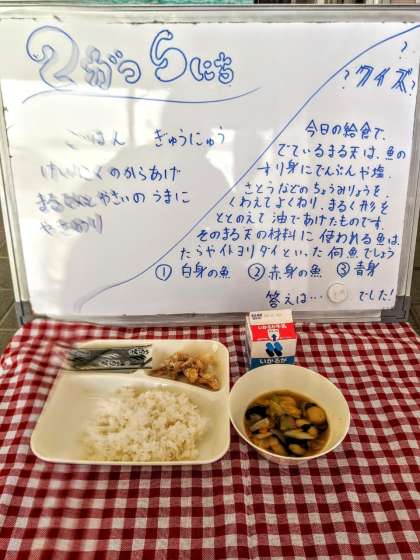 2がつ5にち
ごはん ぎゅうにゅう
けんにくのからあげ
まるてんとやさいのうまに
やきのり
? クイズ ?
?
今日の給食で、
でているまる天は、魚の
すり身にでんぷんや塩、
さとうなどのちょうみりょうを
くわえてよくねり、まるく形を
ととのえて油であげたものです。
そのまる天の材料に使われる魚は、
たらやイトヨリダイといった何魚でしょう
① 白身の魚 ② 赤身の魚 ③ 青身
答えは… ① でした!
いかるが牛乳
いかるが